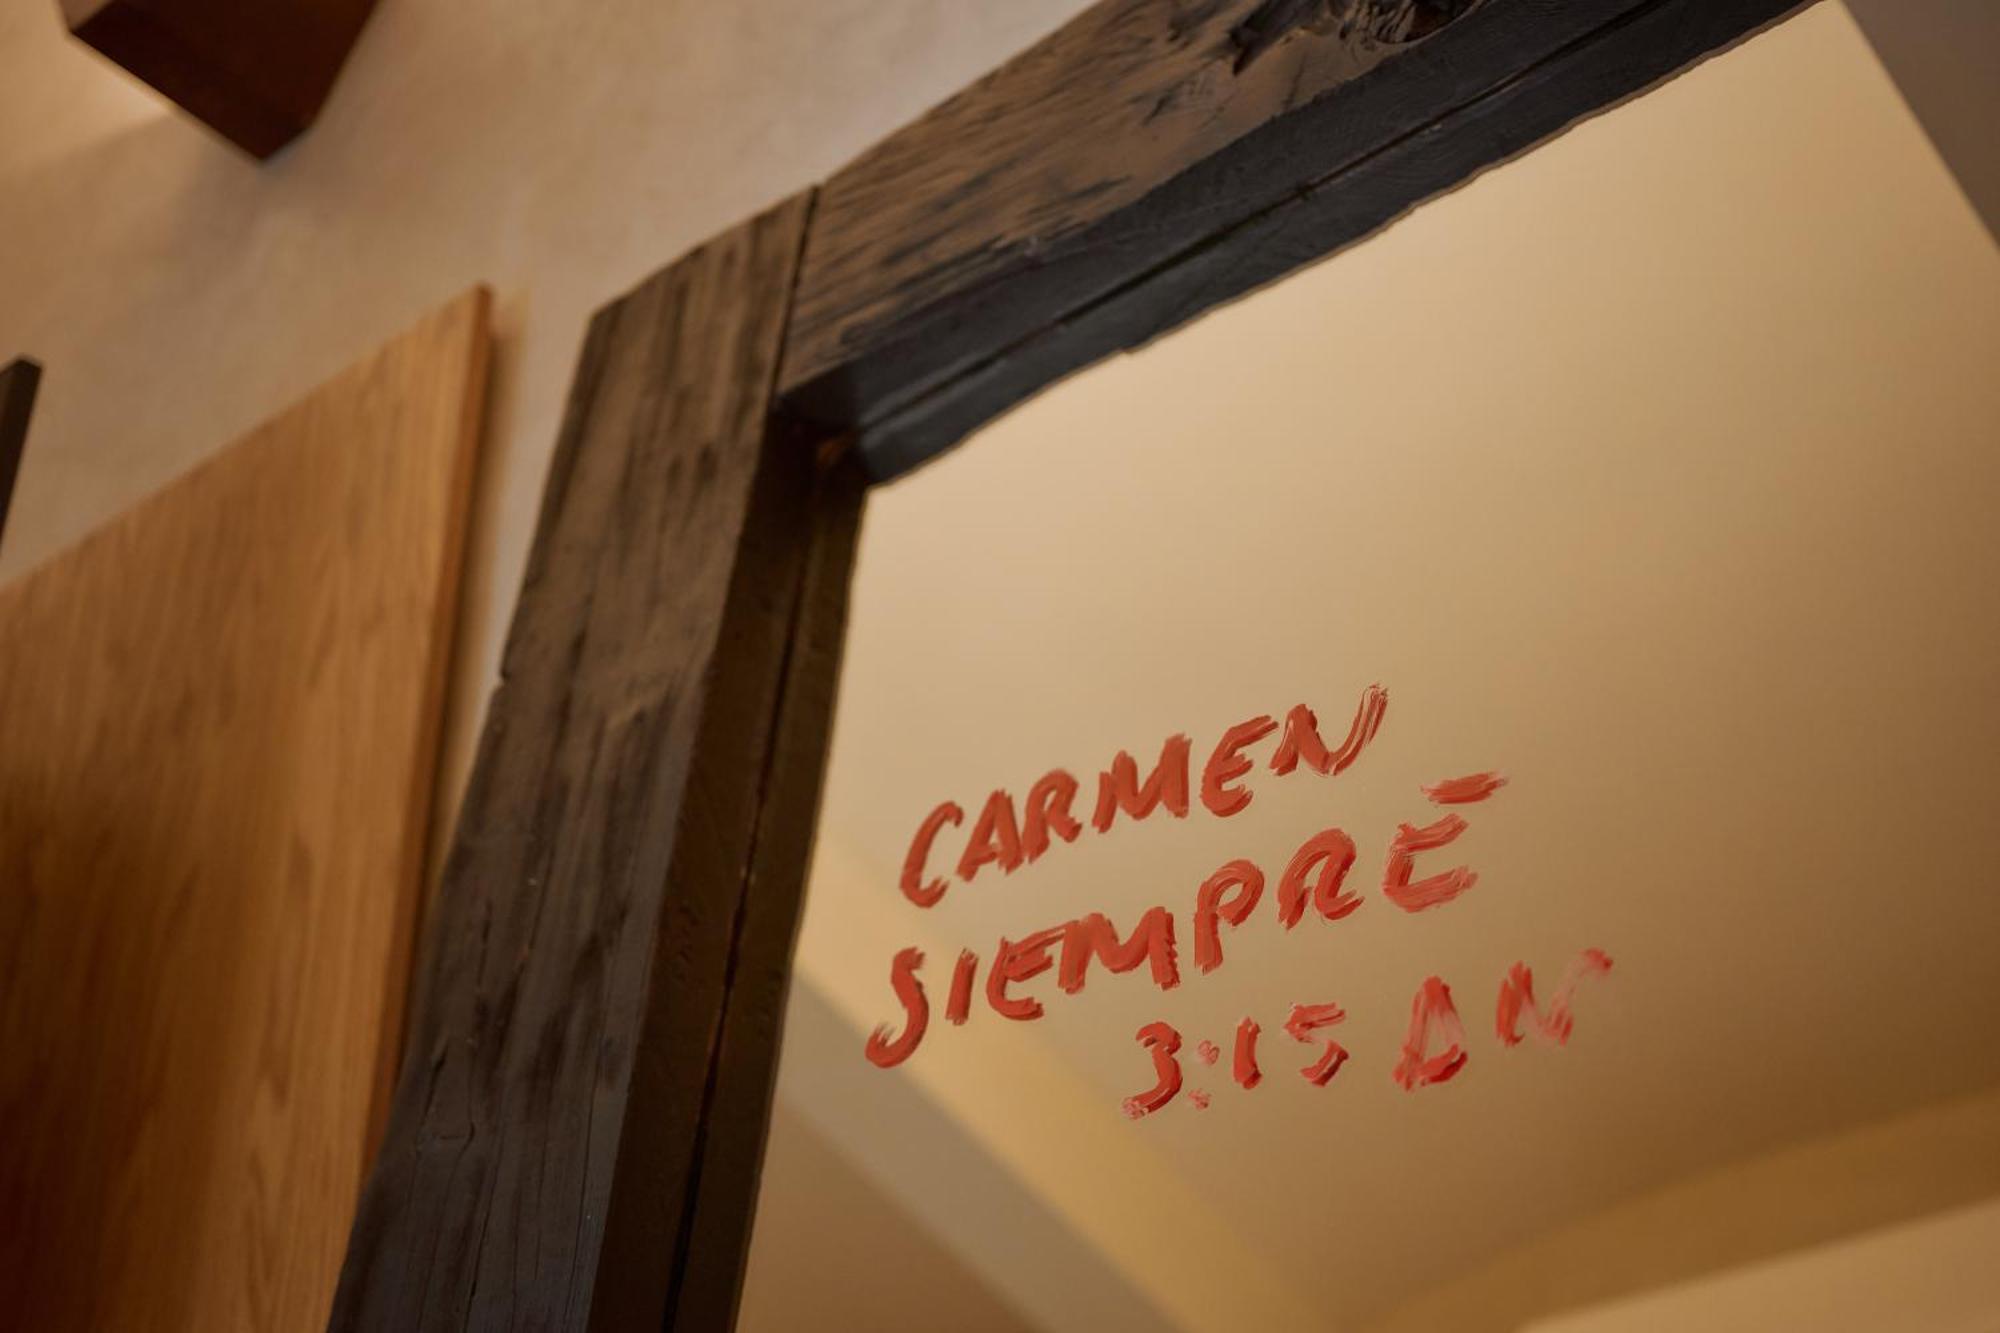 CARMEN
SIEMPRE
3:15 AN